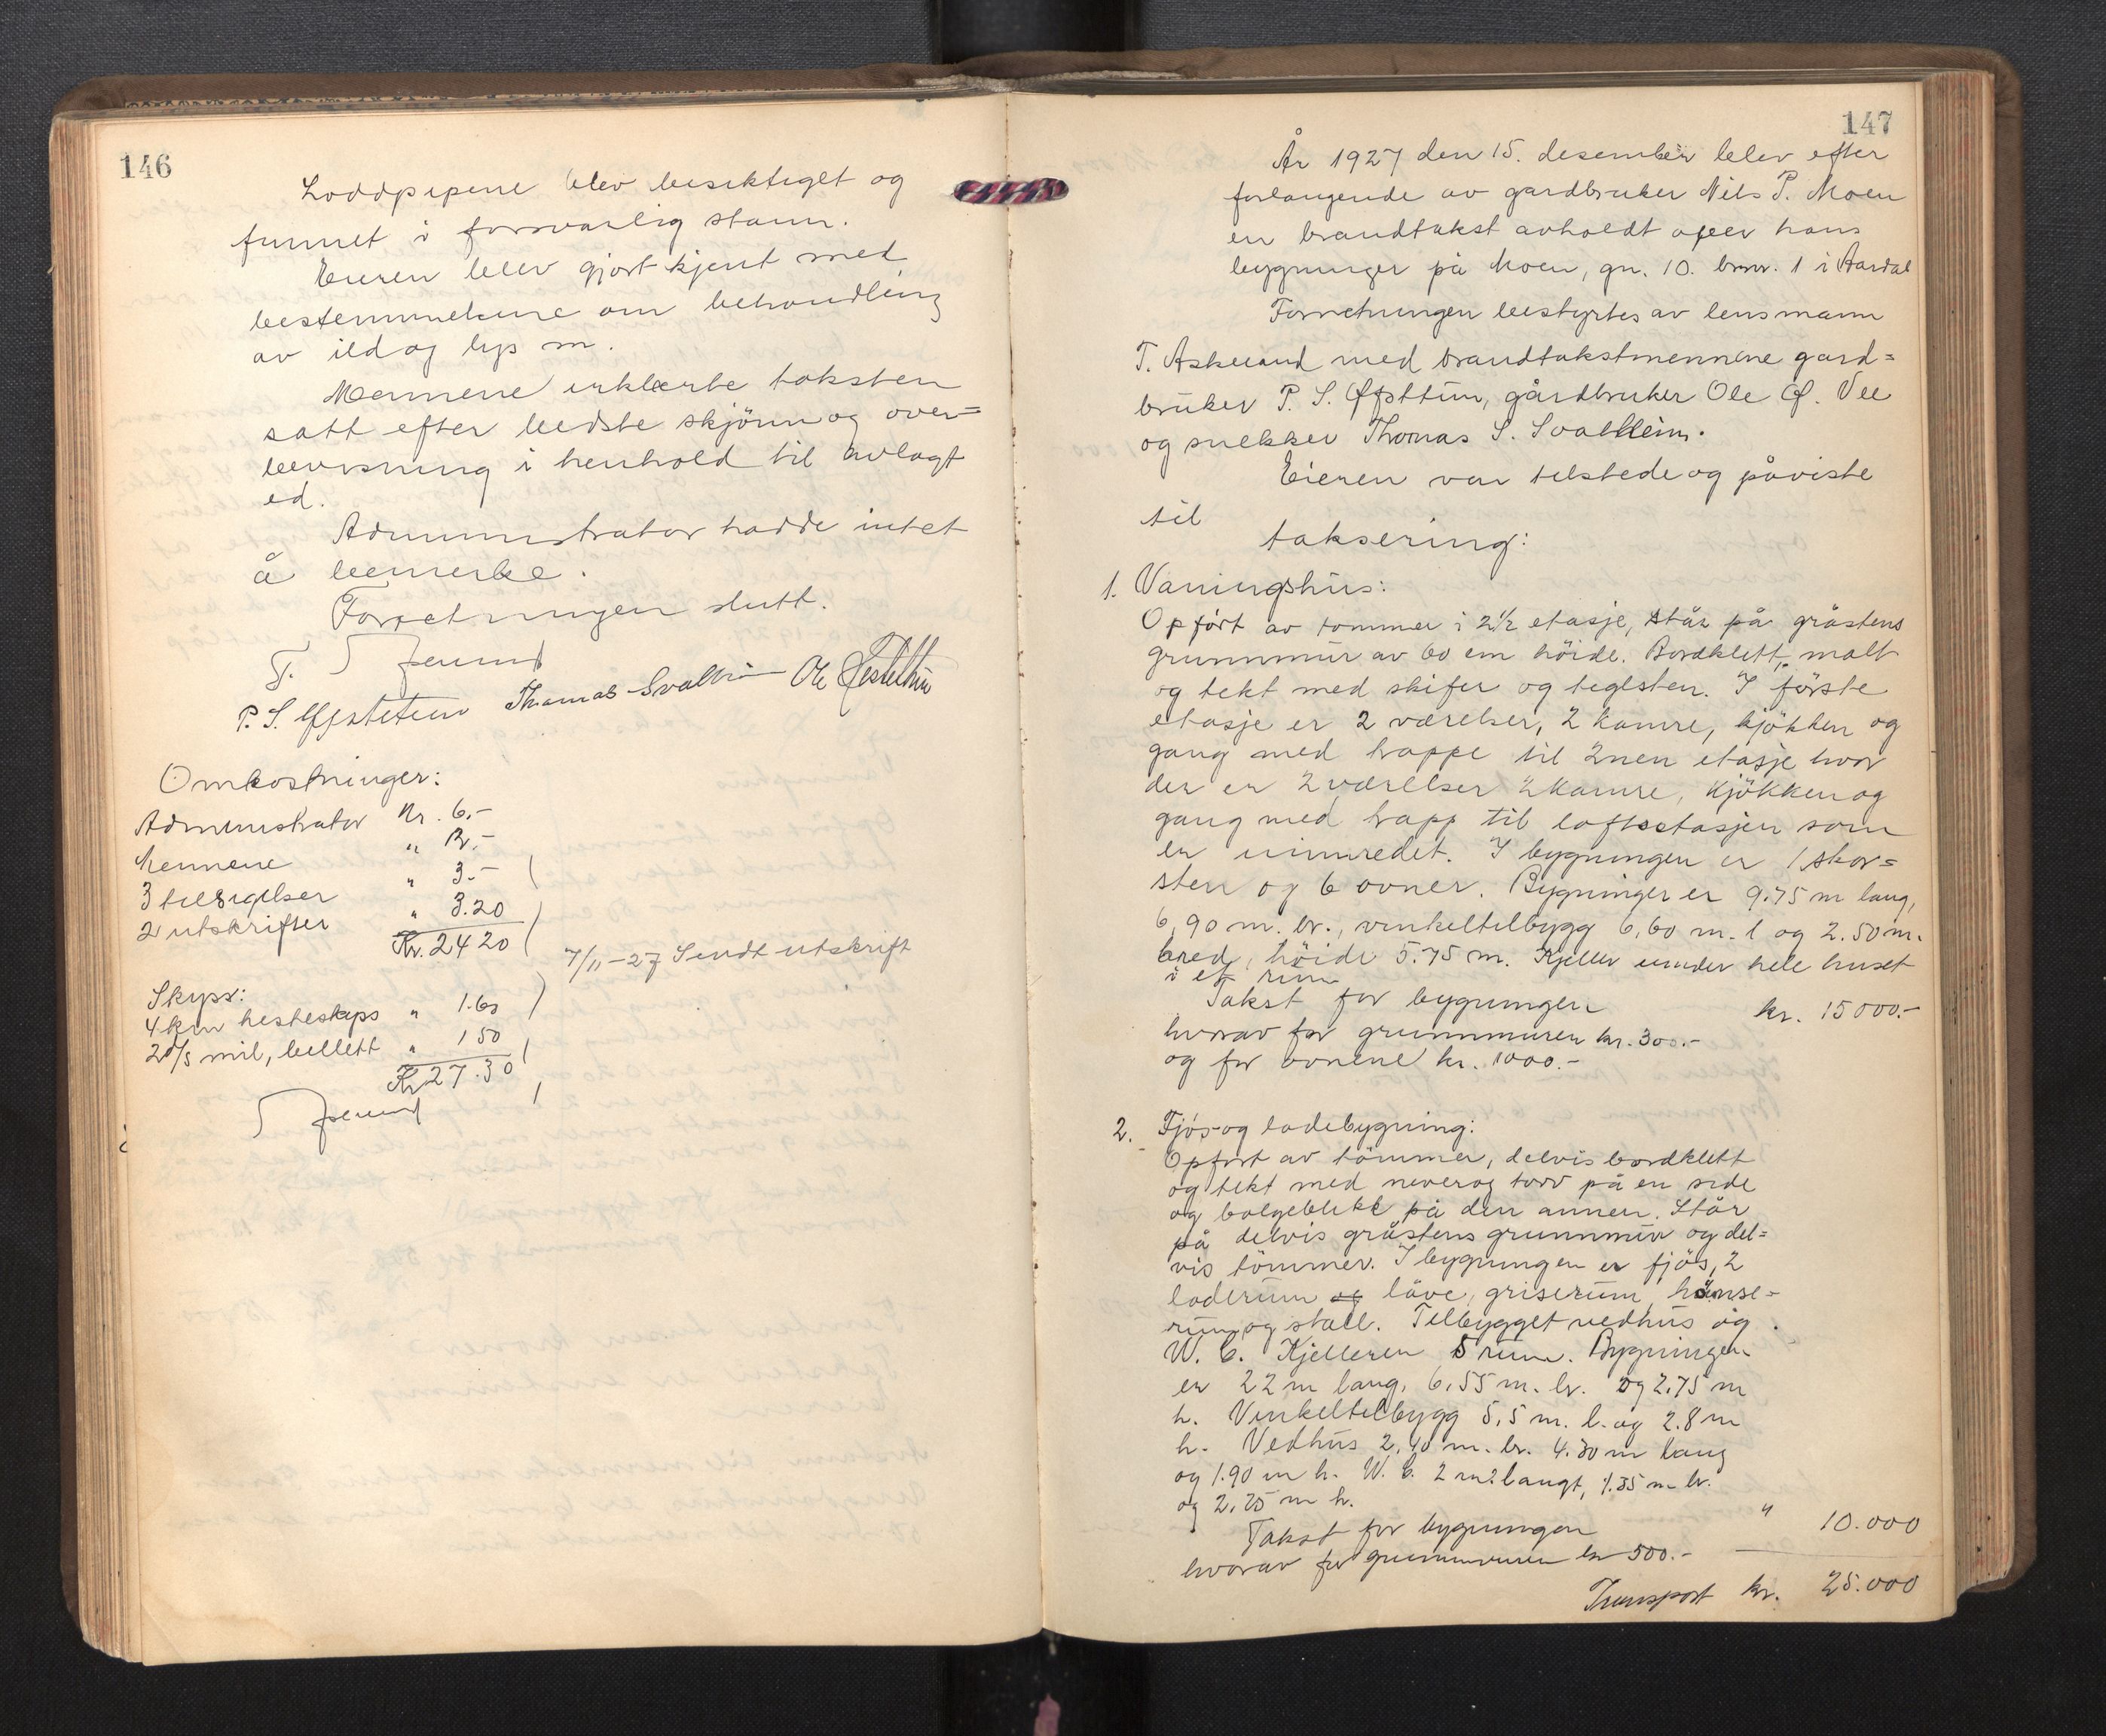 146
Loddpipene blev besiktiget og
funnet i forsvarlig stann.
Eieren blev gjort kjent med
bestemmelsene om behandling
av ild og lys m.
Mennene erklærte taksten
satt efter bedste skjönn og over=
bevisning i henhold til avlagt
ed.
Administrator hadde intet
å bemerke.
Forretningen slutt.
T.
P. S. Øfstetun Thomas Svalheim Ole Hestetun
Omkostninger:
Administrator Kr. 6.-
Mennene " 12.-
3 tilsigelser " 3.-
2 utskrifter " 3.20
Kr. 24 20
7/11-27 Sendt utskrift
Skyss:
4 km hesteskyss " 1.60
2 mil, billett " 1 50
Kr 27.30
147
År 1927 den 15. desember blev efter
forlangende av gardbruker Nils P. Moen
en brandtakst avholdt over hans
bygninger på Moen, gn. 10. brnr. 1 i Aardal
Forretningen bestyrtes av lensmann
T. Askeland med brandtakstmennene gard=
bruker P. S. Øfsttun, gårdbruker Ole O. Vee
og snekker Thomas S. Svalheim.
Eieren var tilstede og påviste
til
taksering:
1. Vaningshus:
Opfört av tømmer i 2½ etasje, står på gråstens
grunnmur av 60 cm höide. Bordklett, malt
og tekt med skifer og teglsten. I förste
etasje er 2 værelser, 2 kamre, kjökken og
gang med trappe til 2nen etasje hvor
der er 2 værelser 2 kamre, kjökken og
gang med trapp til loftsetasjen som
er uinnredet. I bygningen er 1 skor=
sten og 6 ovner. Bygningen er 9.75 m lang,
6,90 m. br., vinkeltilbygg 6,60 m. l og 2.50 m.
bred, höide 5.75 m. Kjeller under hele huset
i et rum
Takst for bygningen kr. 15000.-
hvorav for grunnmuren kr. 300.-
og for ovnene kr. 1000.-
2. Fjös og ladebygning:
Opfört av tömmer, delvis bordklett
og tekt med never og torv på en side
og bolgeblikk på den annen. Står
på delvis gråstens grunnmur og del=
vis tömmer. I bygningen er fjös, 2
laderum og låve, griserum, hönse=
rum og stall. Tilbygget vedhus og
W. C. Kjelleren 5 rum. Bygningen
er 22 m lang, 6,55 m. br. og 2.75 m
h. Vinkeltilbygg 5,5 m. l. og 2.8 m
h. Vedhus 2,40 m. br. 4.30 m lang
og 1.90 m h. W. C. 2 m langt, 1.35 m br.
og 2,25 m h.
Takst for bygningen " 10.000
hvorav for grunnmuren kr 500.-
Transport kr. 25.000